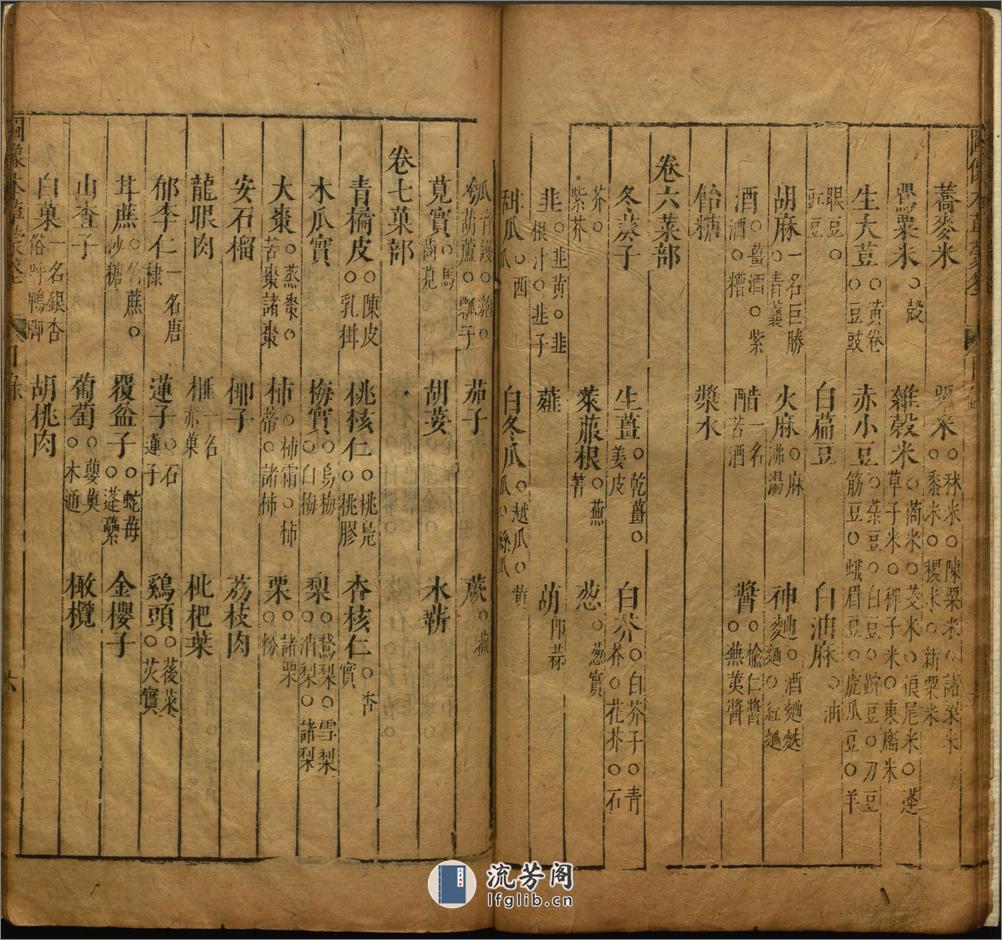 蕎麥米　粟米○秫米○陳粟米○諸粱米○黍米○稷米○新粟米
罌粟米○殼　雜穀米○䔉米○茭米○狼尾米○蓬草子米○稗子米○東廧米
生大荳○黄卷○豆豉　赤小豆○菉豆○白豆○豌豆○刀豆○觔豆○蛾眉豆○虎爪豆○羊
眼豆○豇豆　白藊豆　白油麻○油
胡麻一名巨勝○青蘘　火麻○麻沸湯　神麯○酒麯麩○麵○紅麯
酒○薑酒○紫酒○糟　醋一名苦酒　醬○榆仁醬○蕪荑醬
飴糖　漿水
卷六菜部
冬葵子　生薑○乾薑○姜皮　白芥○白芥子○青芥○花芥○石
芥○紫芥　萊菔根○蕪菁　葱○葱實
韭○韭黄○韭根汁○韭子　薤　葫即蒜
甜瓜○西瓜　白冬瓜○越瓜○絲瓜○黄
瓜　葫蘆○瓢子　茄子　蕨○薇
莧實○馬齒莧　胡荽　水蘄
卷七菓部
青橘皮○陳皮○乳柑　桃核仁○桃梟○桃膠　杏核仁○杏實
木瓜實　梅實○烏梅○白梅　梨○鵞梨○雪梨○消梨○諸梨
大棗○蒸棗○苦棗諸棗　柿○柿霜○柿蒂○諸柿　栗○諸栗○粉
安石榴　椰子　荔枝肉
龍眼肉　榧一名赤菓　枇杷葉
郁李仁一名唐棣　蓮子○石蓮子　鷄頭○菱菜○芡實
甘蔗○竹蔗○沙糖　覆盆子○蛇苺○蓬虆　金櫻子
山查子　葡萄○蘡薁○木通　橄欖
白菓一名銀杏俗呼鴨脚　胡桃肉
流芳阁
lfglib.cn